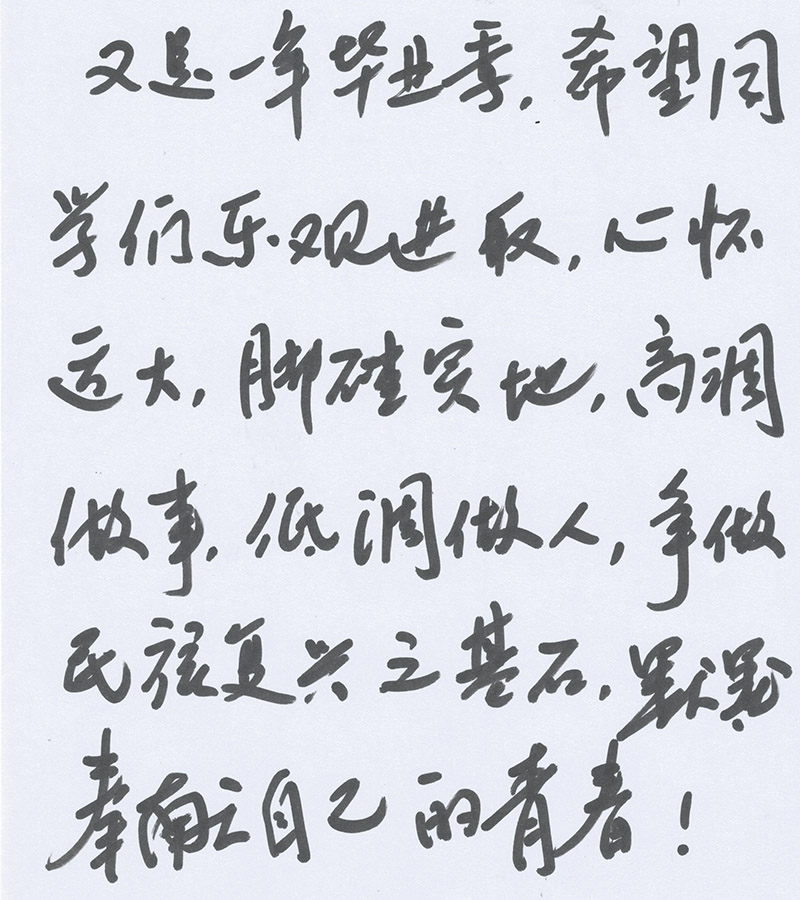 又是一年毕业季，希望同
学们乐观进取，心怀
远大，脚踏实地，高调
做事，低调做人，争做
民族复兴之基石，默默
奉献自己的青春！